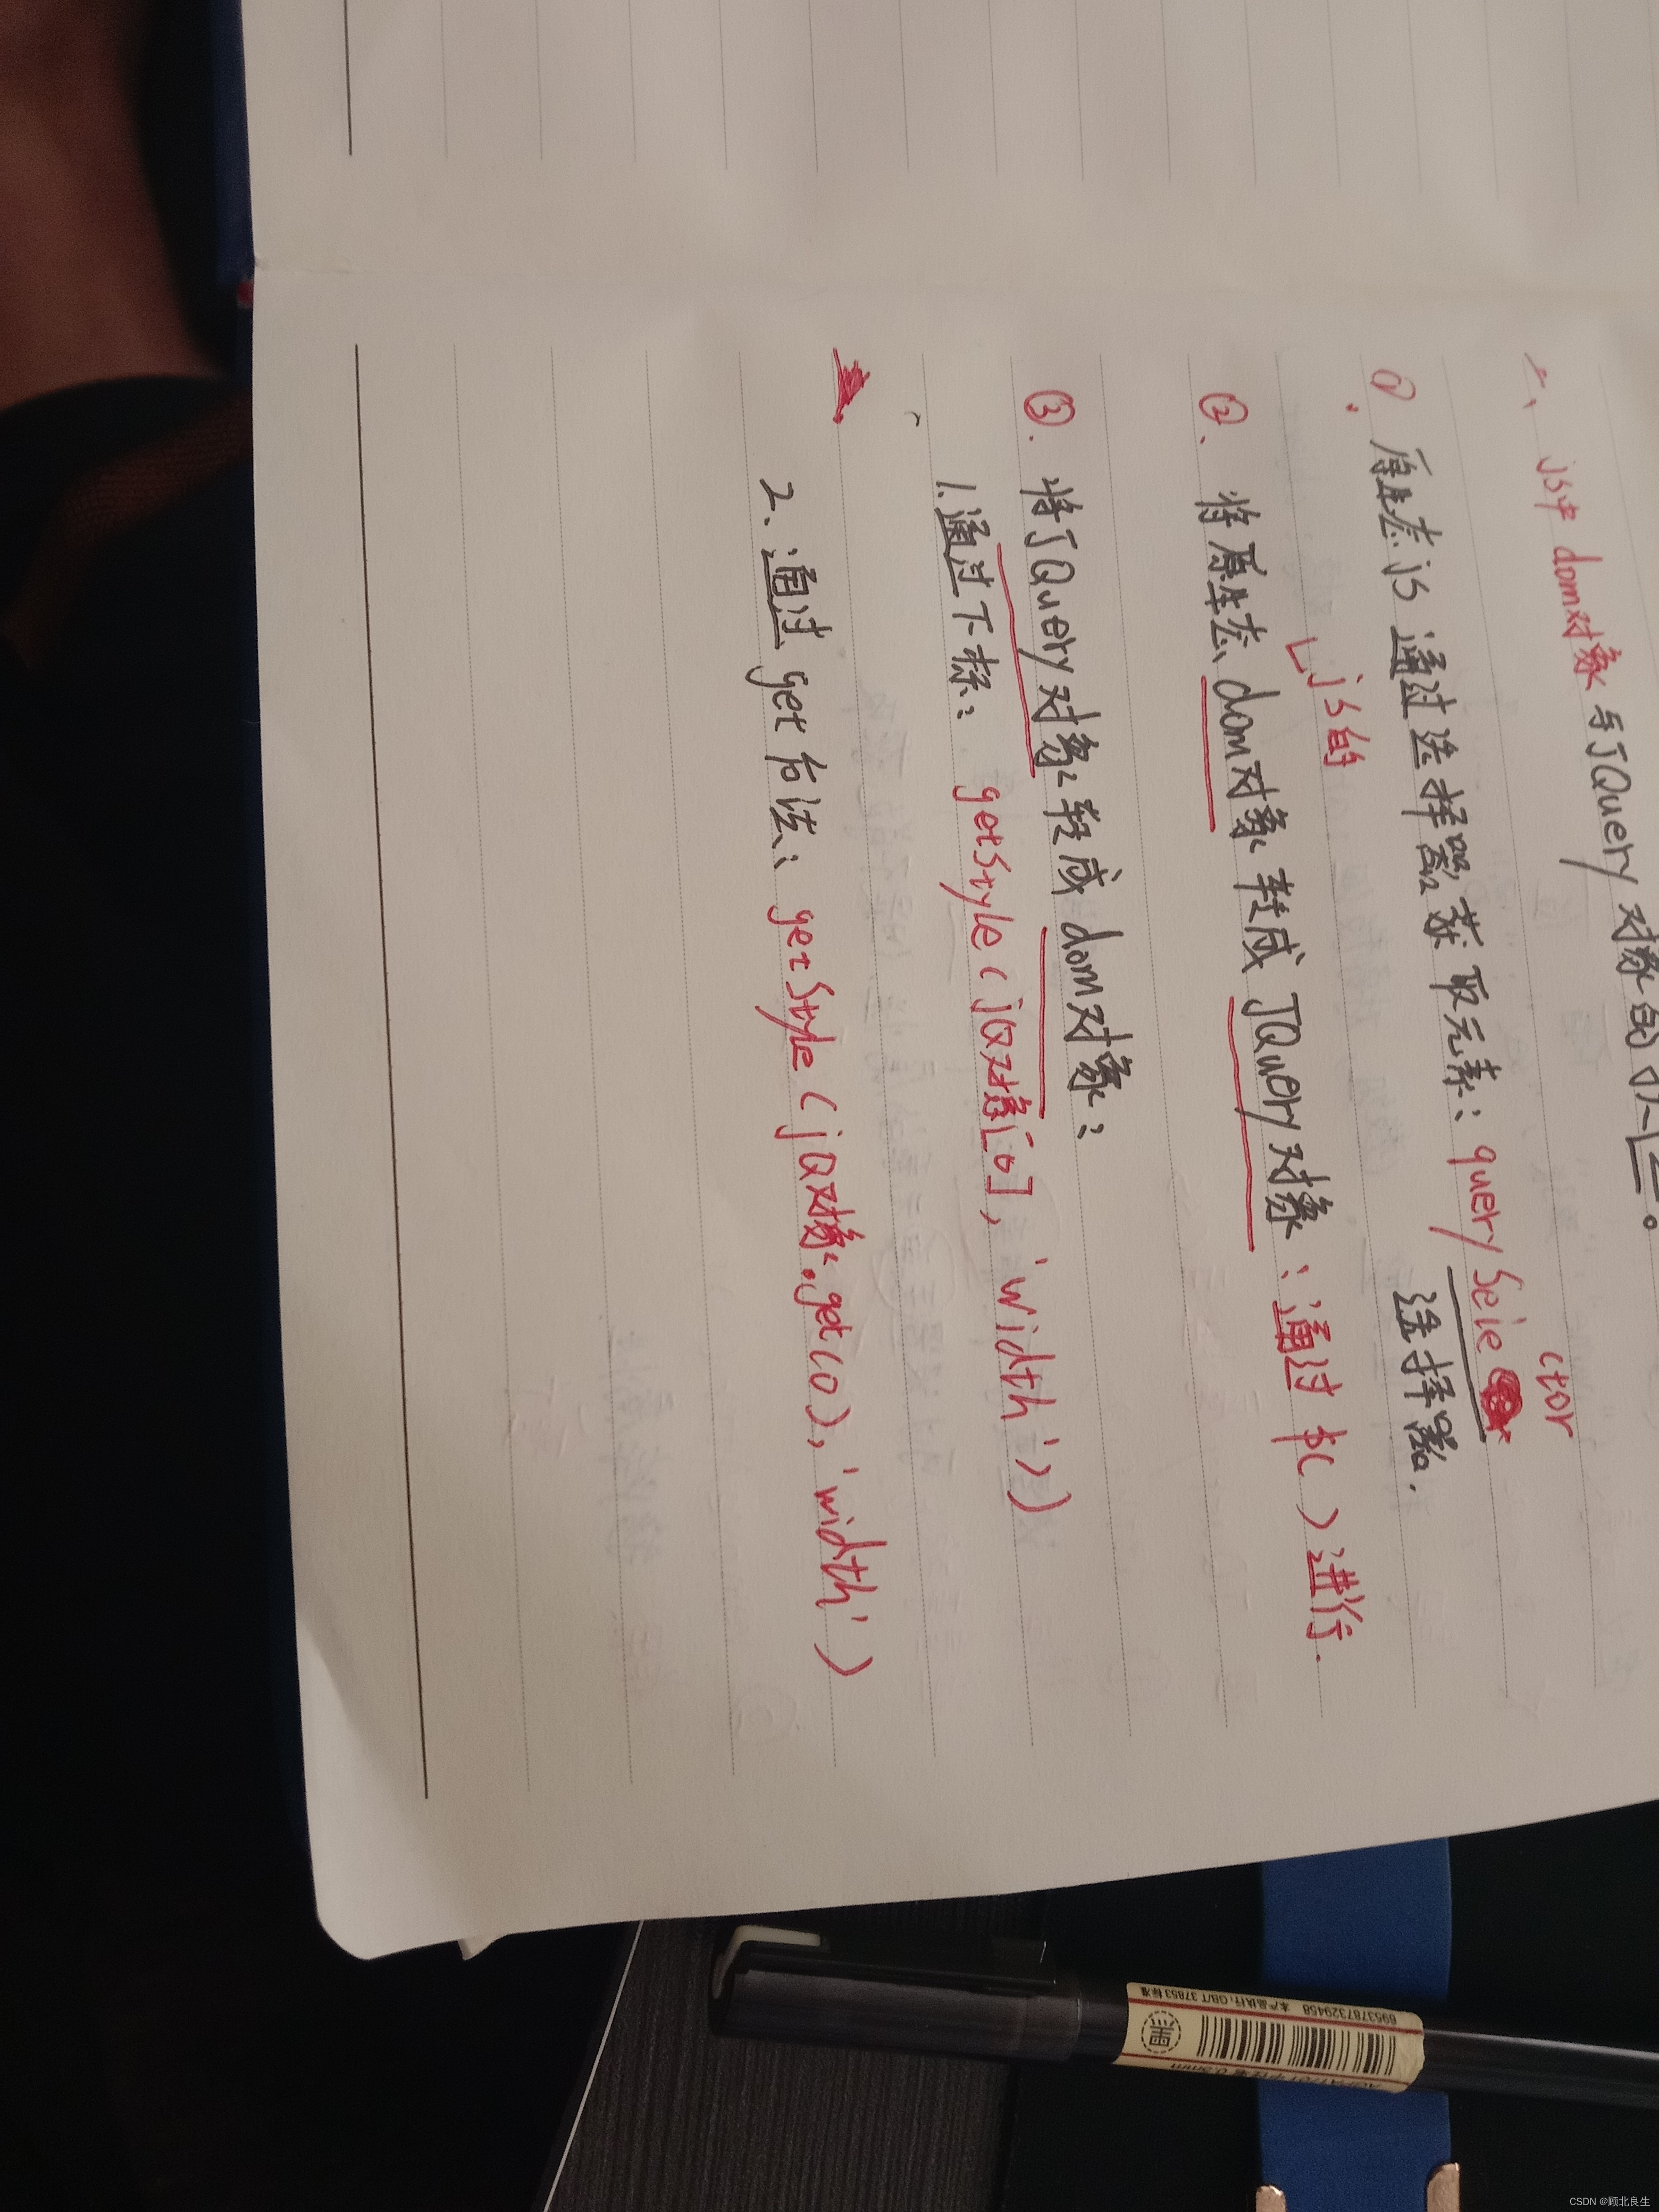 一、js中dom对象与JQuery对象的
① 原生态js通过选择器获取元素：querySelector
选择器.
js的
②、将原生态dom对象转成JQuery对象：通过$( )进行.
③. 将JQuery对象转成dom对象：
1.通过下标：getStyle(jQ对象[0],'width')
2、通过get方法：getStyle(jQ对象.get(0),'width')
6953787329458
本产品执行:GB/T 37853标准
CSDN @顾北良生